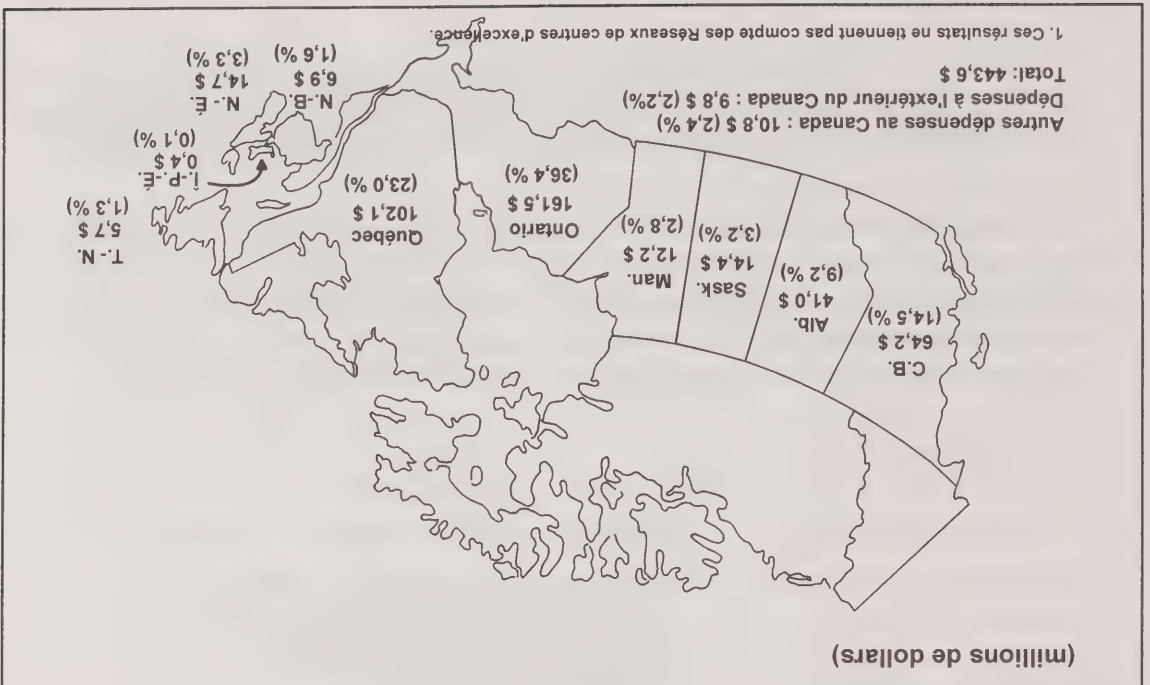 (millions de dollars)
C.B.
64,2 $
(14,5 %)
Alb.
41,0 $
(9,2 %)
Sask.
14,4 $
(3,2 %)
Man.
12,2 $
(2,8 %)
Ontario
161,5 $
(36,4 %)
Québec
102,1 $
(23,0 %)
T.- N.
5,7 $
(1,3 %)
Î.-P.-É.
0,4 $
(0,1 %)
N.-B.
6,9 $
(1,6 %)
N.- É.
14,7 $
(3,3 %)
Autres dépenses au Canada : 10,8 $ (2,4 %)
Dépenses à l'extérieur du Canada : 9,8 $ (2,2%)
Total: 443,6 $
1. Ces résultats ne tiennent pas compte des Réseaux de centres d'excellence.